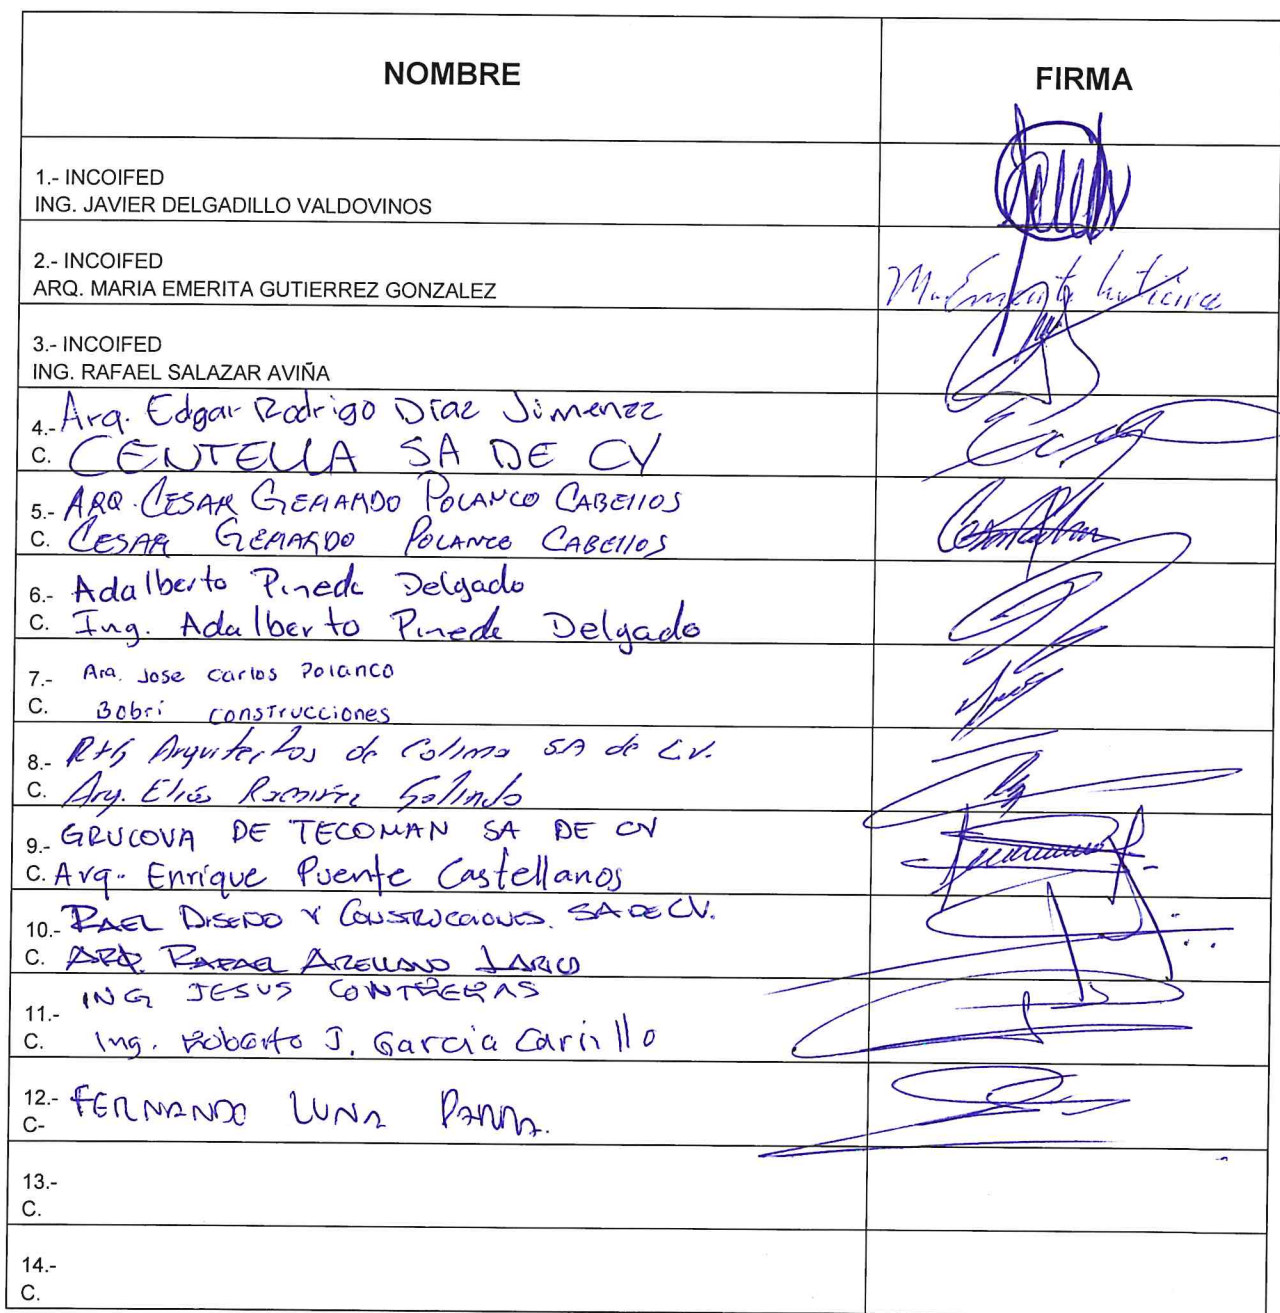 NOMBRE
FIRMA
1.- INCOIFED
ING. JAVIER DELGADILLO VALDOVINOS
2.- INCOIFED
ARQ. MARIA EMERITA GUTIERREZ GONZALEZ
Ma Emerita Gutierrez
3.- INCOIFED
ING. RAFAEL SALAZAR AVIÑA
4.- Arq. Edgar Rodrigo Díaz Jimenez
C. CENTELLA SA DE CV
5.- ARQ. CESAR GERARDO POLANCO CABELLOS
C. CESAR GERARDO POLANCO CABELLOS
6.- Adalberto Pineda Delgado
C. Ing. Adalberto Pineda Delgado
7.- Arq. Jose Carlos Polanco
C. Bobri construcciones
8.- R+G Arquitectos de Colima SA de C.V.
C. Arq. Elías Ramírez Galindo
9.- GRUCOVA DE TECOMAN SA DE CV
C. Arq. Enrique Puente Castellanos
10.- RAEL DISEÑO Y CONSTRUCCIONES. SA DE CV.
C. ARQ. RAFAEL ARELLANO
11.- ING JESUS CONTRERAS
C. Ing. Roberto J. García Carrillo
12.- FERNANDO LUNA PARRA.
C-
13.-
C.
14.-
C.